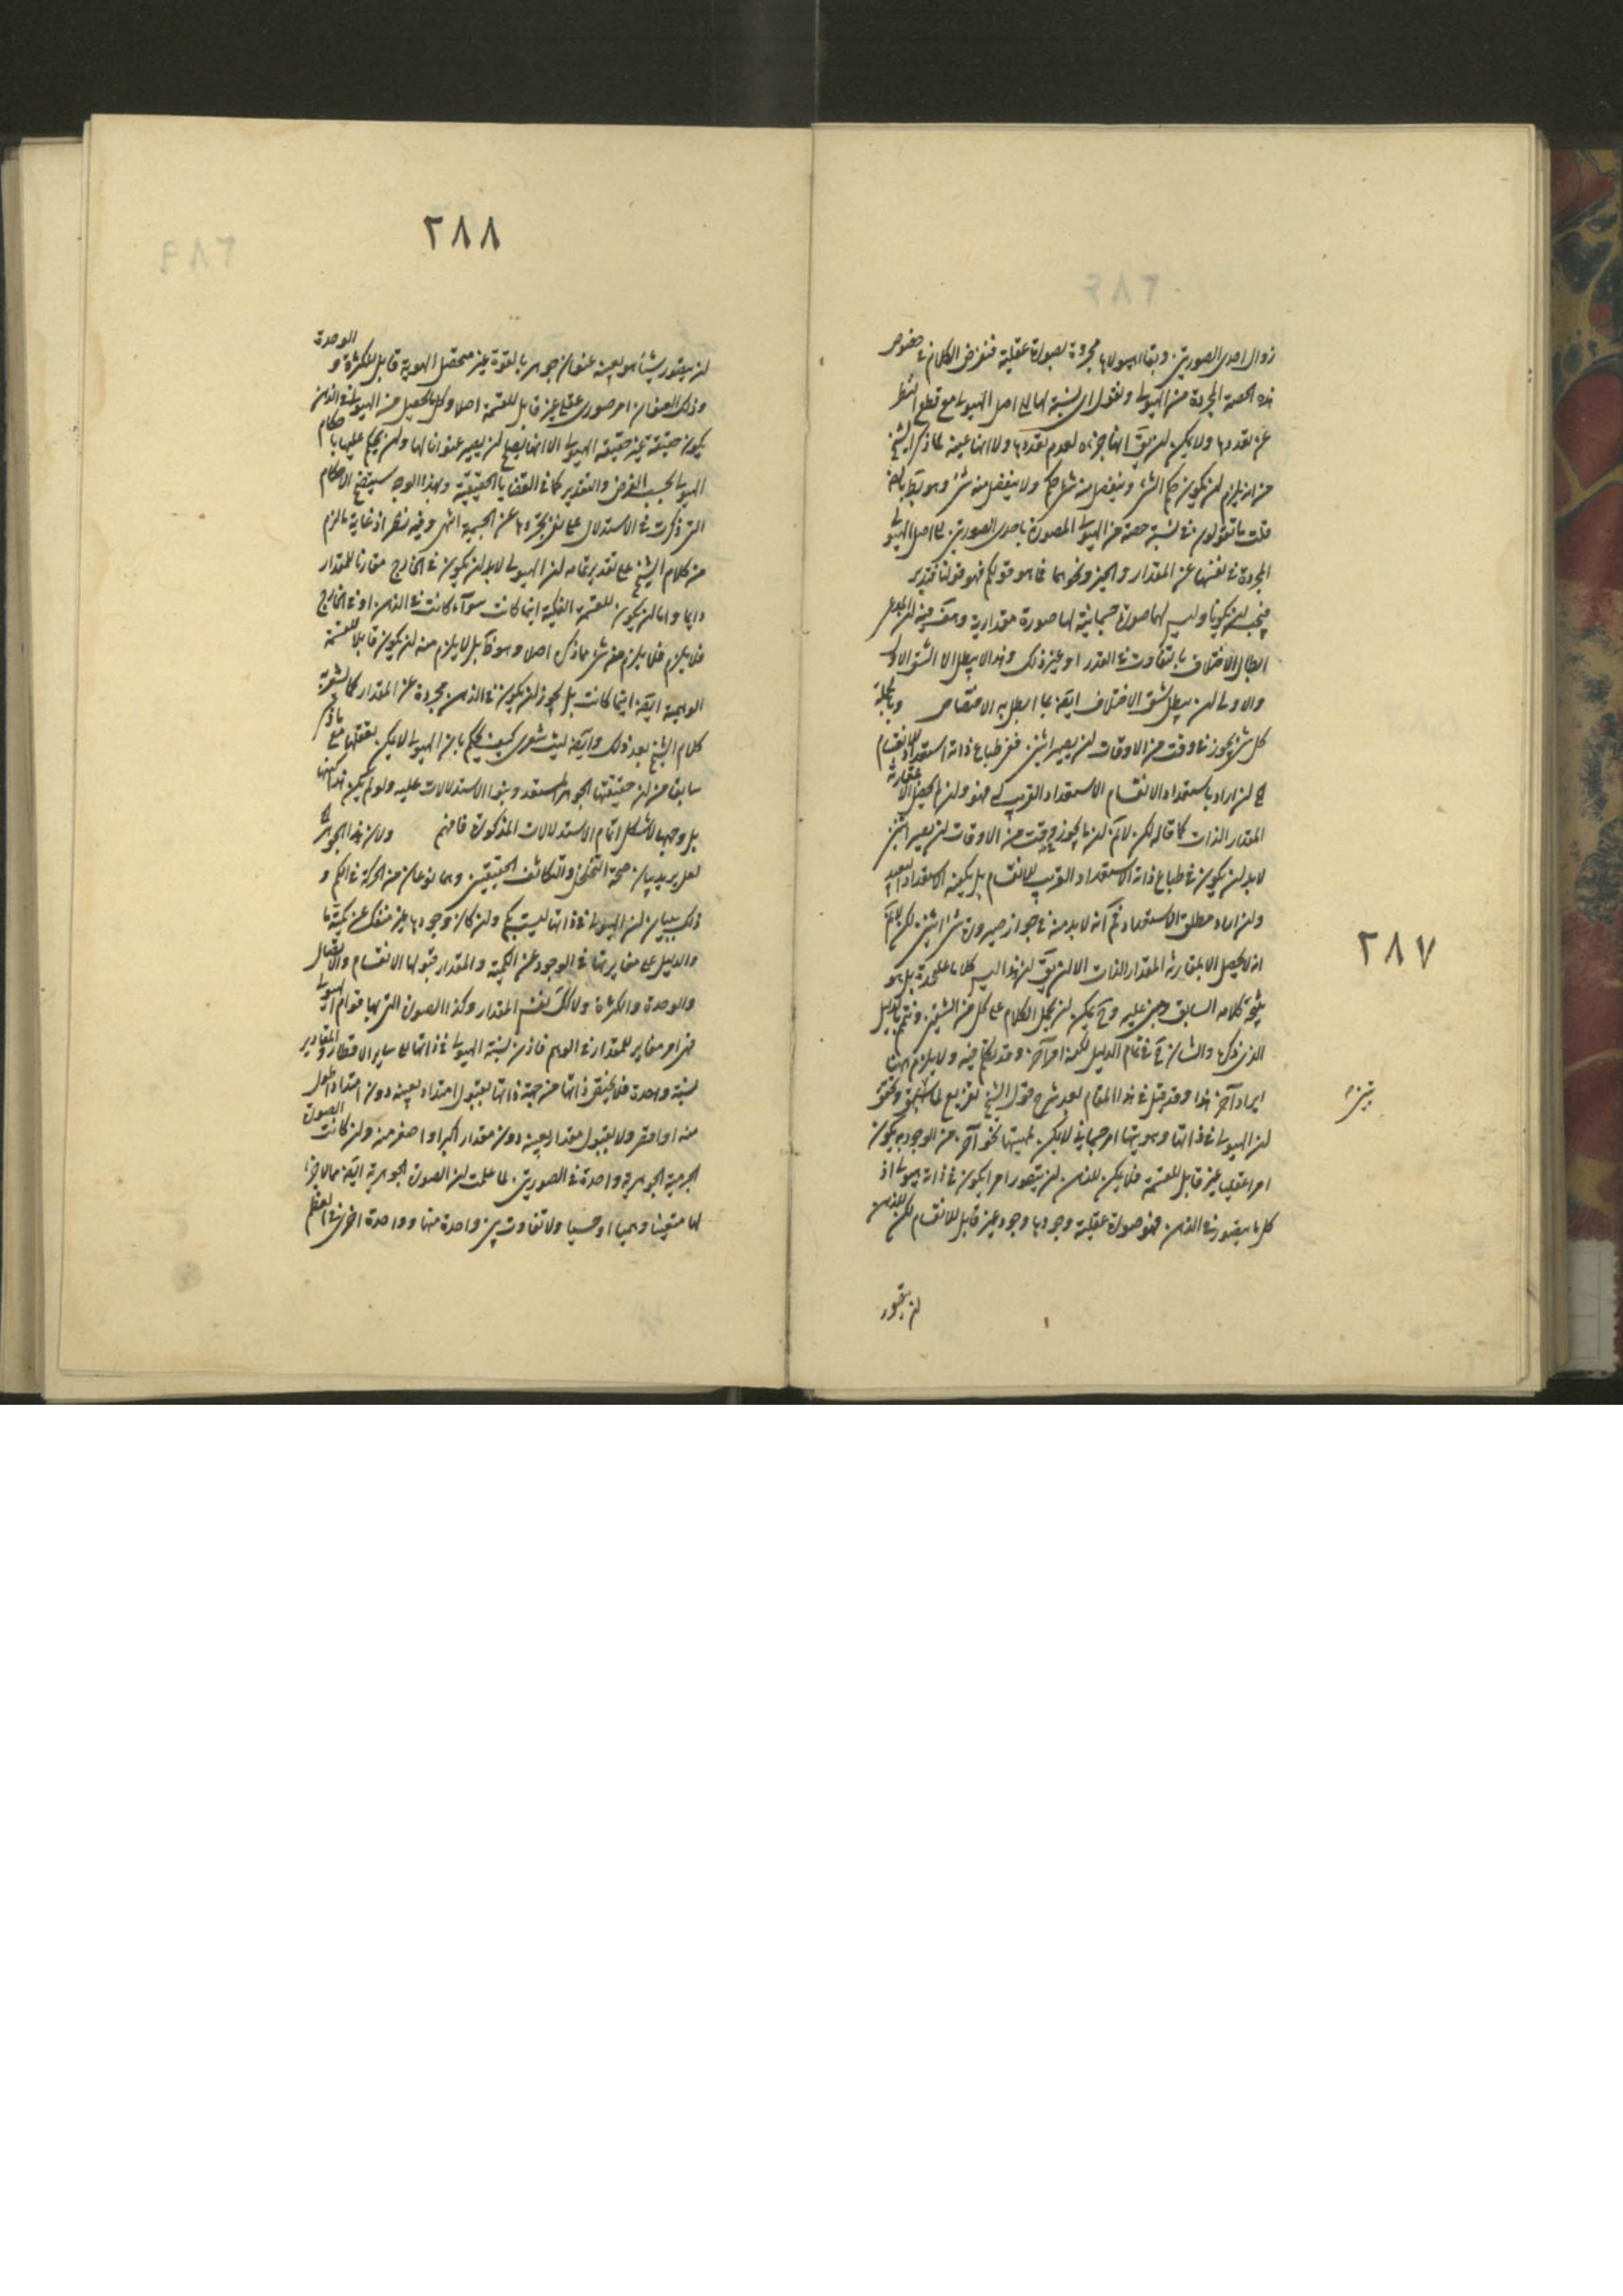 زوال احدى الصورتين وبقاء هيولاها مجردة بصورة عقلية فنفرض الكلام في خصوص
هذه الحصة المجردة من الهيولى ونقول اى نسبة لها الى اصل الهيولى مع قطع النظر
عن تقدرها ولا يمكن ان يق انها جزءه لعدم تقدرها ولا انها عينه لما ذكره الشيخ
من انه يلزم ان يكون حكم الشئ وينفصل منه شئ حكمه ولا ينفصل منه شئ وهو بط بالضرورة
قلت ما تقولون في نسبة حصة من الهيولى المصورة باحدى الصورتين الى اصل الهيولى
المجردة في نفسها عن المقدار والحيز ونحوهما فما هو قولكم فهو قولنا فتدبر
فيجب ان يكون وليس لها صورة جسمانية لها صورة مقدارية
ابطال الاختلاف بالتفاوت في القدر او غير ذلك وهذا لا يبطل الا الشق الاول
والاولى ان يبطل شق الاختلاف ايضا بما ابطل به الاختصاص وبالجملة
كل شئ يجوز في وقت من الاوقات ان يصير اثنين ففى طباع ذاته استعداد للانقسام
ان اراد باستعداد الانقسام الاستعداد القريب فهو وان لم يحصل الا بمقارنة
المقدار الذات كما قاله لكن لانم ان ما يجوز في وقت من الاوقات ان يصير اثنين
لابد ان يكون في طباع ذاته الاستعداد القريب للانقسام بل يكفيه الاستعداد البعيد
وان اراد مطلق الاستعداد نعم انه لابد منه في جواز صيرورة شئ اثنين لكن لانم
انه لا يحصل الا بمقارنة المقدار الذات الا ان يق ان هذا ليس كلاما عليحدة بل هو
نتيجة كلامه السابق ومبنى عليه وح يمكن ان يحمل الكلام على كل من الشقين ويتم بالدليل
الذى ذكره والشان ح في تمام الدليل لكنه امر آخر وقد تكلم فيه ولا يلزم ههنا
ايراد آخر هذا وقد قيل في هذا المقام بعد شرح قول الشيخ تفريع لما سبق وتحقق
ان الهيولى في ذاتها وهويتها امر جسمانى لا يمكن لمهيتها نحو آخر من الوجود به يكون
امرا عقليا غير قابل للقسمة فلا يمكن للذهن ان يتصور امرا يكون في ذاته هيولى اذ
كل ما يتصور في الذهن فهو صورة عقلية وجودها وجود غير قابل للانقسام لكن للذهن
ان يتصور
٢٨٧
٢٨٨
ان يتصور شيئا هو بعينه عنوان جوهر بالقوة غير متحصل الهوية قابل للكثرة والوحدة
وذلك العنوان امر صورى عقلى غير قابل للقسمة اصلا وكل ما يحصل من الهيولى في الذهن
يكون حقيقة غير حقيقة الهيولى الا انها يصلح ان يصير عنوانا لها وان يحكم عليها باحكام
الهيولى بحسب الفرض والتقدير كما في القضايا الحقيقية وبهذا الوجه سيتضح الاحكام
التى ذكرت في الاستدلال على نفى تجردها عن الجسمية انتهى وفيه نظر اذ غاية ما لزم
من كلام الشيخ على تقدير تمامه ان الهيولى لابد ان يكون في الخارج مقارنا للمقدار
دايما واما ان يكون للقسمة الفكية اينما كانت سواء كانت في الذهن او في الخارج
فلا يلزم فلا يلزم من شئ مما ذكره اصلا وهو ظ بل لا يلزم منه ان يكون قابلا للقسمة
الوهمية ايضا اينما كانت بل يجوز ان يكون في الذهن مجردة عن المقدار كما
كلام الشيخ بعد ذلك وايضا ليت شعرى كيف يحكم بان الهيولى لا يمكن تعقلها مع ما ذكر
سابقا من ان حقيقتها الجوهر المستعد وبنوا الاستدلالات عليه ولو لم يكن هذا كنهها
بل وجهها لاشكل اتمام الاستدلالات المذكورة فافهم ولان هذا الجوهر
لعل يريد بيان صحة التخلخل والتكاثف الحقيقيين وهما نوعان من الحركة في الكم و
ذلك ببيان ان الهيولى في ذاتها ليست بكم وان كان وجودها غير منفك عن كمية ما
والدليل على مغايرتها في الوجود عن الكمية والمقدار قبولها الانقسام والاتصال
والوحدة والكثرة ولا كك نفس المقدار وكذا الصورة التى بها قوام الهيولى
فهى امر مغاير للمقدار في الوهم فاذن نسبة الهيولى في ذاتها الى ساير الاقطار والمقادير
نسبة واحدة فلا يختص ذاتها من جهة ذاتها بقبول امتداد بعينه دون امتداد اطول
منه او اقصر ولا بقبول مقدار بعينه دون مقدار اكبر او اصغر منه وان كانت الصورة
الجرمية الجوهرية واحدة في الصورتين لما علمت ان الصورة الجوهرية ايضا مما لا جزء
لها متعينا وهميا او حسيا ولا تفاوت بين واحدة منها وواحدة اخرى في العظم